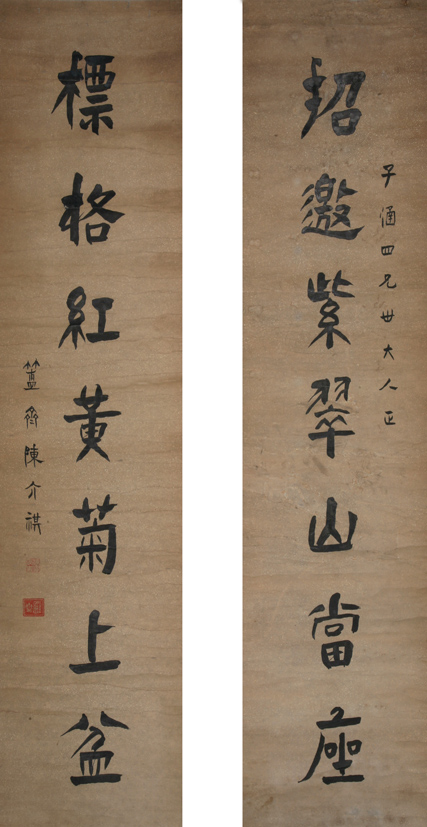 子涵四兄世大人正
招邀紫翠山當座
標格紅黃菊上盆
簠齋陳介祺